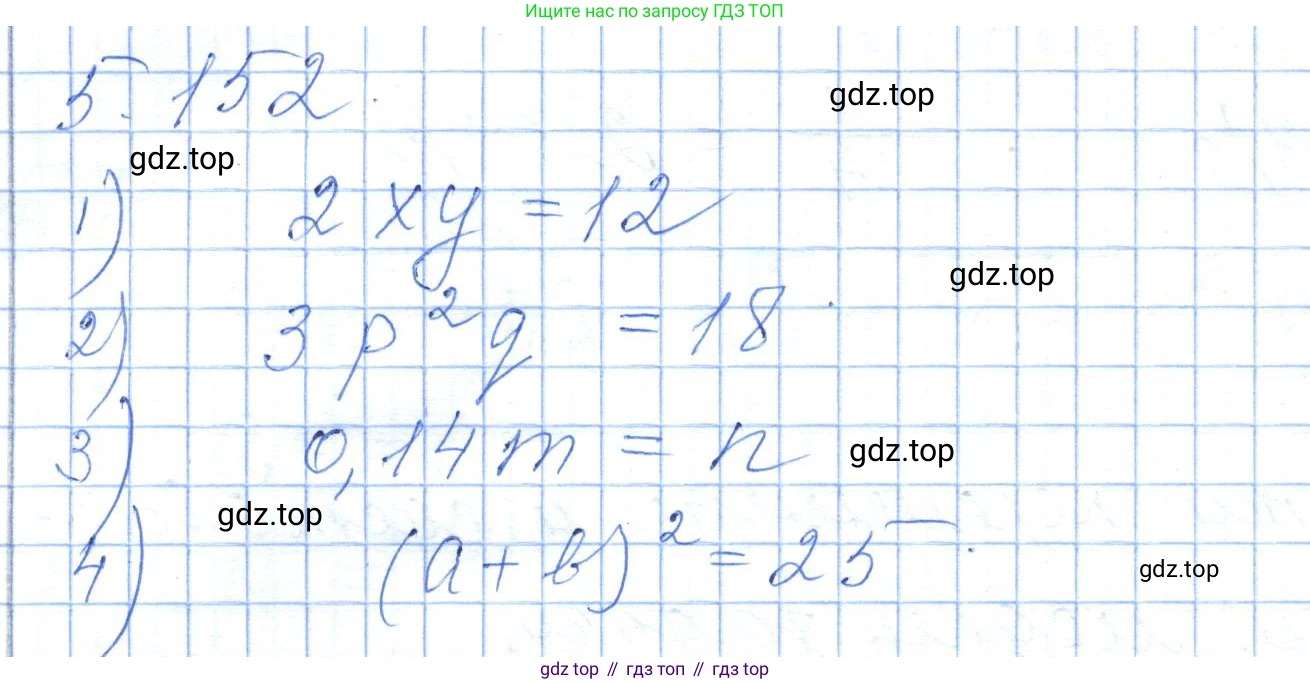 Ищите нас по запросу ГДЗ ТОП
5.152.
gdz.top
gdz.top
1) 2xy = 12
gdz.top
2) 3p²q = 18.
3) 0,14m = n
gdz.top
gdz.top
4) (a+b)² = 25.
gdz.top
gdz top // гдз топ // гдз top